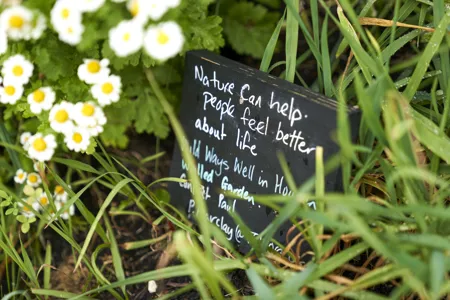 Nature Can help
people feel better
about life
Ways Well in
Walled Garden
Paul